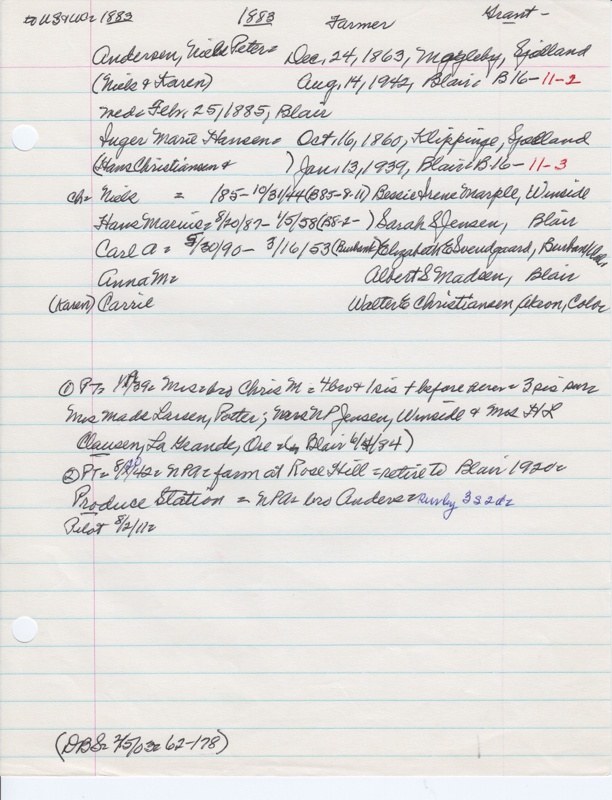 to US & WC= 1883 1883 Farmer Grant-
Andersen, Niels Peter= Dec, 24, 1863, Magleby, Sjolland
(Niels & Karen) Aug, 14, 1942, Blair= B16-11-2
med= Febr. 25, 1885, Blair
Inger Marie Hansen= Oct, 16, 1860, Klippinge, Sjolland
(Hans Christiansen & ) Jan, 13, 1939, Blair= B16-11-3
ch= Niels = 185- 10/31/44 (B85-8-11) Bessie Irene Marple, Winside
Hans Marius= 8/20/87- 1/5/58 (B8-2- ) Sarah S Jensen, Blair
Carl A= 5/30/90- 3/16/53 (Burbank) Elizabeth E Svendgaard, Burbank
Anna M= Albert S Madsen, Blair
(Karen) Carrie Walter E Christiansen, Akron, Color
① PT= /39= Mrs= bro Chris M= 4 bro & 1 sis + before her= 3 sis surv
Mrs Mads Larsen, Potter; Mrs NP Jensen, Winside & Mrs HL
Clausen, La Grande, Ore= Blair /34)
② PT= 8/20/42= NPA= farm at Rose Hill= retire to Blair 1920=
Produce Station = NPA= bro Anders= surv by 3 s 2 d=
Pilot 8/2/11=
(DBS= 2/5/03= 62-178)